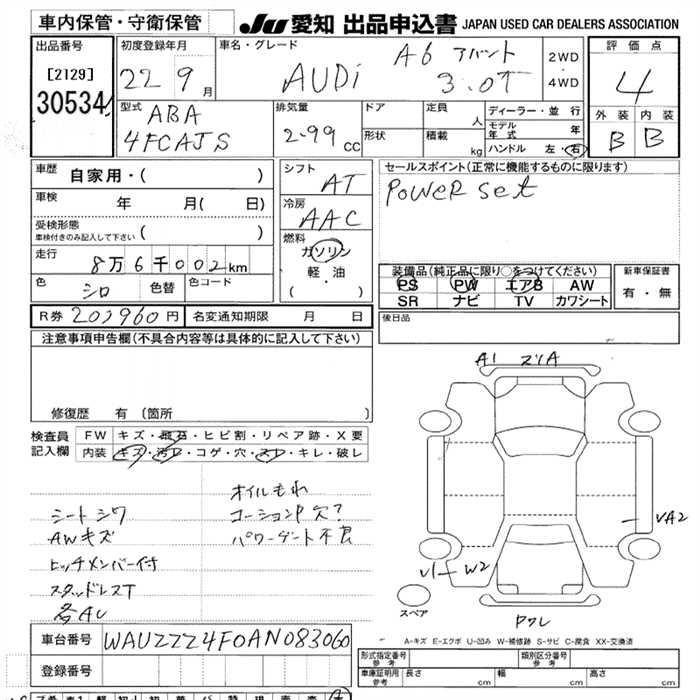 車内保管・守衛保管 JU 愛知 出品申込書 JAPAN USED CAR DEALERS ASSOCIATION
出品番号 初度登録年月 車名・グレード 評価点
[2129] 22 9月 AUDi A6 アバント 2WD
30534 3.0T 4WD 4
型式 排気量 ドア 定員 人 ディーラー・並行 外装 内装
ABA モデル年式 年 B B
4FCAJS 2.99cc 形状 積載 kg ハンドル 左・右
車歴 自家用・( ) シフト AT セールスポイント(正常に機能するものに限ります)
車検 年 月( 日) 冷房 AAC POWER set
受検形態
車検付きのみ記入して下さい ( ) 燃料 ガソリン
走行 8万6千002km 軽・油 装備品(純正品に限り○をつけてください) 新車保証書
色 シロ 色替 色コード ・( ) PS PW エアB AW 有・無
SR ナビ TV カワシート
R券 203960円 名変通知期限 月 日 後日品
注意事項申告欄(不具合内容等は具体的に記入して下さい)
A1 スリA
修復歴 有(箇所
検査員 FW キズ・飛石・ヒビ割・リペア跡・X要
記入欄 内装 キズ・汚レ・コゲ・穴・スレ・キレ・破レ
オイルもれ
シートシワ コーションP欠?
AWキズ パワーゲート不良
VA2
ヒッチメンバー付
U1 W2
スタッドレスT
各AU
スペア
Pワレ
A-キズ E-エクボ U-凹み W-補修跡 S-サビ C-腐食 XX-交換済
車台番号 WAUZZZ4F0AN083060
形式指定番号 参考 類別区分番号 参考
登録番号 車庫証明用 参考 長さ cm 幅 cm 高さ cm